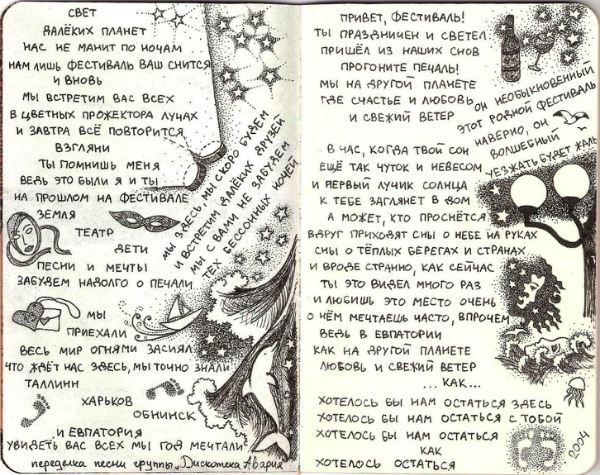 СВЕТ
ДАЛЁКИХ ПЛАНЕТ
НАС НЕ МАНИТ ПО НОЧАМ
НАМ ЛИШЬ ФЕСТИВАЛЬ ВАШ СНИТСЯ
И ВНОВЬ
МЫ ВСТРЕТИМ ВАС ВСЕХ
В ЦВЕТНЫХ ПРОЖЕКТОРА ЛУЧАХ
И ЗАВТРА ВСЁ ПОВТОРИТСЯ
ВЗГЛЯНИ
ТЫ ПОМНИШЬ МЕНЯ
ВЕДЬ ЭТО БЫЛИ Я И ТЫ
НА ПРОШЛОМ НА ФЕСТИВАЛЕ
ЗЕМЛЯ
ТЕАТР
ДЕТИ
ПЕСНИ И МЕЧТЫ
ЗАБУДЕМ НАДОЛГО О ПЕЧАЛИ
МЫ
ПРИЕХАЛИ
ВЕСЬ МИР ОГНЯМИ ЗАСИЯЛ
ЧТО ЖДЁТ НАС ЗДЕСЬ, МЫ ТОЧНО ЗНАЛИ
ТАЛЛИНН
ХАРЬКОВ
ОБНИНСК
И ЕВПАТОРИЯ
УВИДЕТЬ ВАС ВСЕХ МЫ ГОД МЕЧТАЛИ
переделка песни группы „Дискотека Авария"
МЫ ЗДЕСЬ, МЫ СКОРО БУДЕМ
И ВСТРЕТИМ ДАЛЁКИХ ДРУЗЕЙ
МЫ С ВАМИ НЕ ЗАБУДЕМ
ТЕХ БЕССОННЫХ НОЧЕЙ
ПРИВЕТ, ФЕСТИВАЛЬ!
ТЫ ПРАЗДНИЧЕН И СВЕТЕЛ
ПРИШЁЛ ИЗ НАШИХ СНОВ
ПРОГОНИТЕ ПЕЧАЛЬ!
МЫ НА ДРУГОЙ ПЛАНЕТЕ
ГДЕ СЧАСТЬЕ И ЛЮБОВЬ
И СВЕЖИЙ ВЕТЕР
ОН НЕОБЫКНОВЕННЫЙ
ЭТОТ РОДНОЙ ФЕСТИВАЛЬ
НАВЕРНО, ОН
ВОЛШЕБНЫЙ
УЕЗЖАТЬ БУДЕТ ЖАЛЬ
В ЧАС, КОГДА ТВОЙ СОН
ЕЩЁ ТАК ЧУТОК И НЕВЕСОМ
И ПЕРВЫЙ ЛУЧИК СОЛНЦА
К ТЕБЕ ЗАГЛЯНЕТ В ДОМ
А МОЖЕТ, КТО ПРОСНЁТСЯ
ВДРУГ ПРИХОДЯТ СНЫ О НЕБЕ НА РУКАХ
СНЫ О ТЁПЛЫХ БЕРЕГАХ И СТРАНАХ
И ВРОДЕ СТРАННО, КАК СЕЙЧАС
ТЫ ЭТО ВИДЕЛ МНОГО РАЗ
И ЛЮБИШЬ ЭТО МЕСТО ОЧЕНЬ
О НЁМ МЕЧТАЕШЬ ЧАСТО, ВПРОЧЕМ
ВЕДЬ В ЕВПАТОРИИ
КАК НА ДРУГОЙ ПЛАНЕТЕ
ЛЮБОВЬ И СВЕЖИЙ ВЕТЕР
...КАК...
ХОТЕЛОСЬ БЫ НАМ ОСТАТЬСЯ ЗДЕСЬ
ХОТЕЛОСЬ БЫ НАМ ОСТАТЬСЯ С ТОБОЙ
ХОТЕЛОСЬ БЫ НАМ ОСТАТЬСЯ
КАК
ХОТЕЛОСЬ ОСТАТЬСЯ
2004